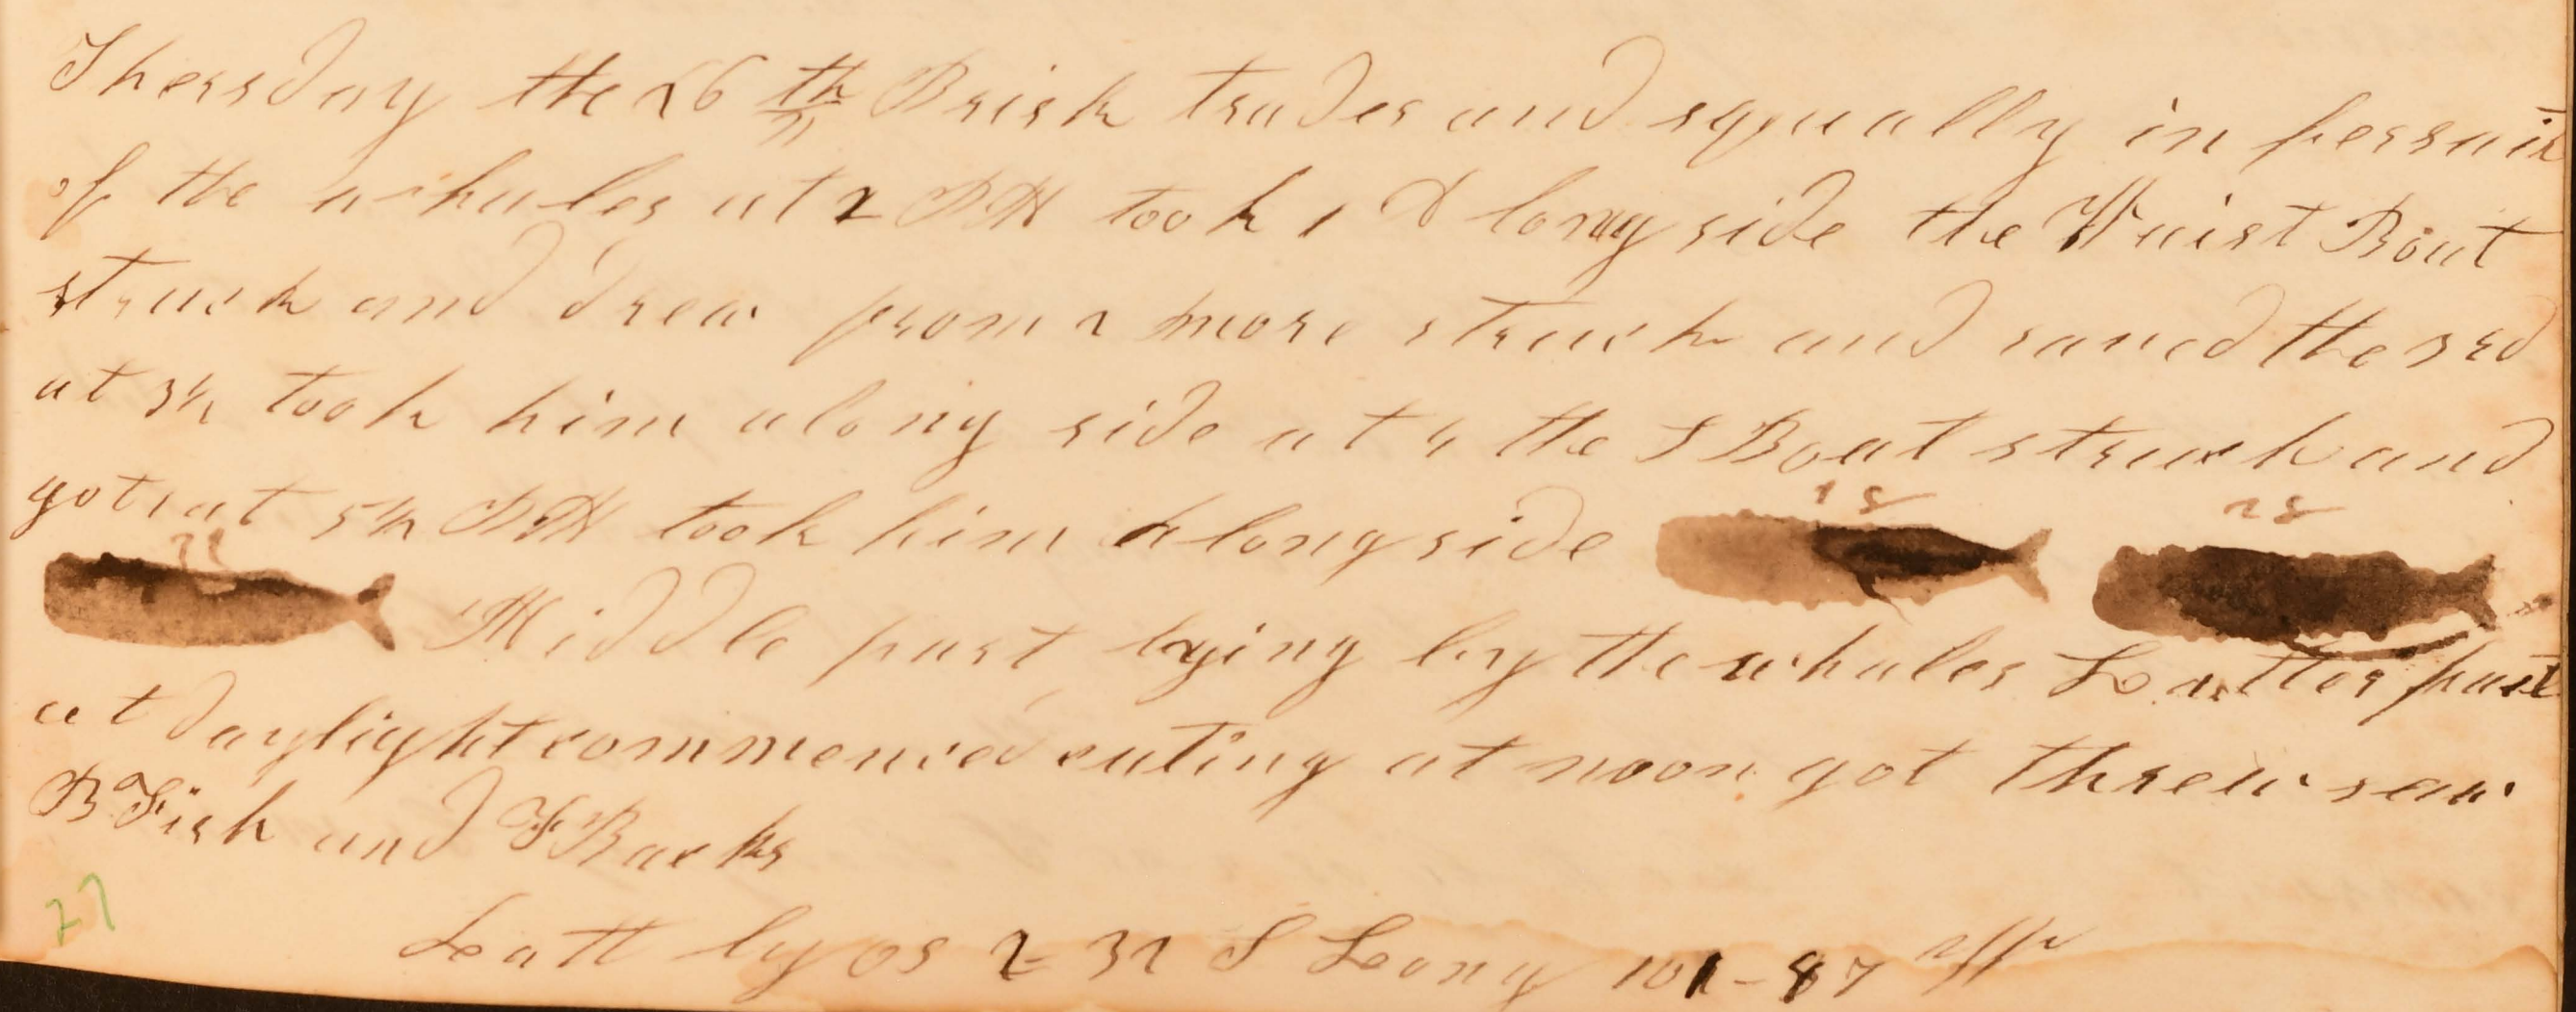 Thersday the 26 th Brisk trades and squally in persuit
of the whales at 2 PM took 1 A longside the Waist Boat
struck and drew from 2 more struck and saved the 3rd
at 3½ took him along side at 4 the S Boat struck and
got 1 at 5½ PM took him Alongside
28 28
Middle part lying by the whales Latter part
at daylight commenced cuting at noon got threw saw
B Fish and F Backs
27
Latt by os 2-32 S Long 101-87